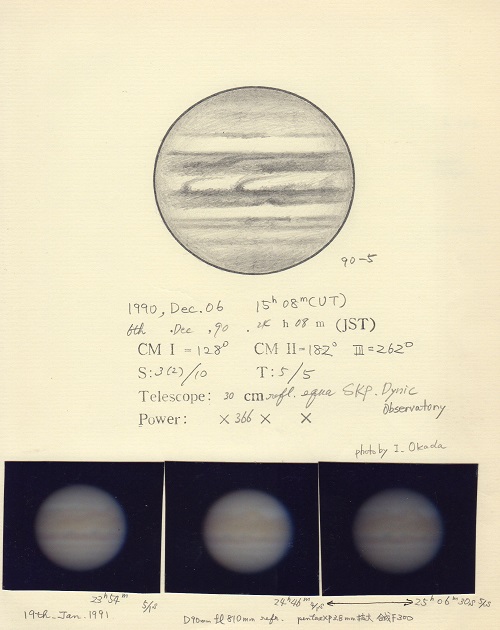 90-5
1990, Dec. 06 15h 08m (UT)
6th . Dec , 90 . h 08 m (JST)
CM I = 128° CM II = 182° III = 262°
S: 3(2)/10 T: 5/5
Telescope: 30 cm refl. equa SKP. Dynic
Observatory
Power: × 366 × ×
photo by I. Okada
23h 54m 5/1s 24h 46m 4/1s 25h 06m 30s 5/1s
19th. Jan. 1991 D90mm fl 810mm refr. pentax XP28mm 拡大 合成F300